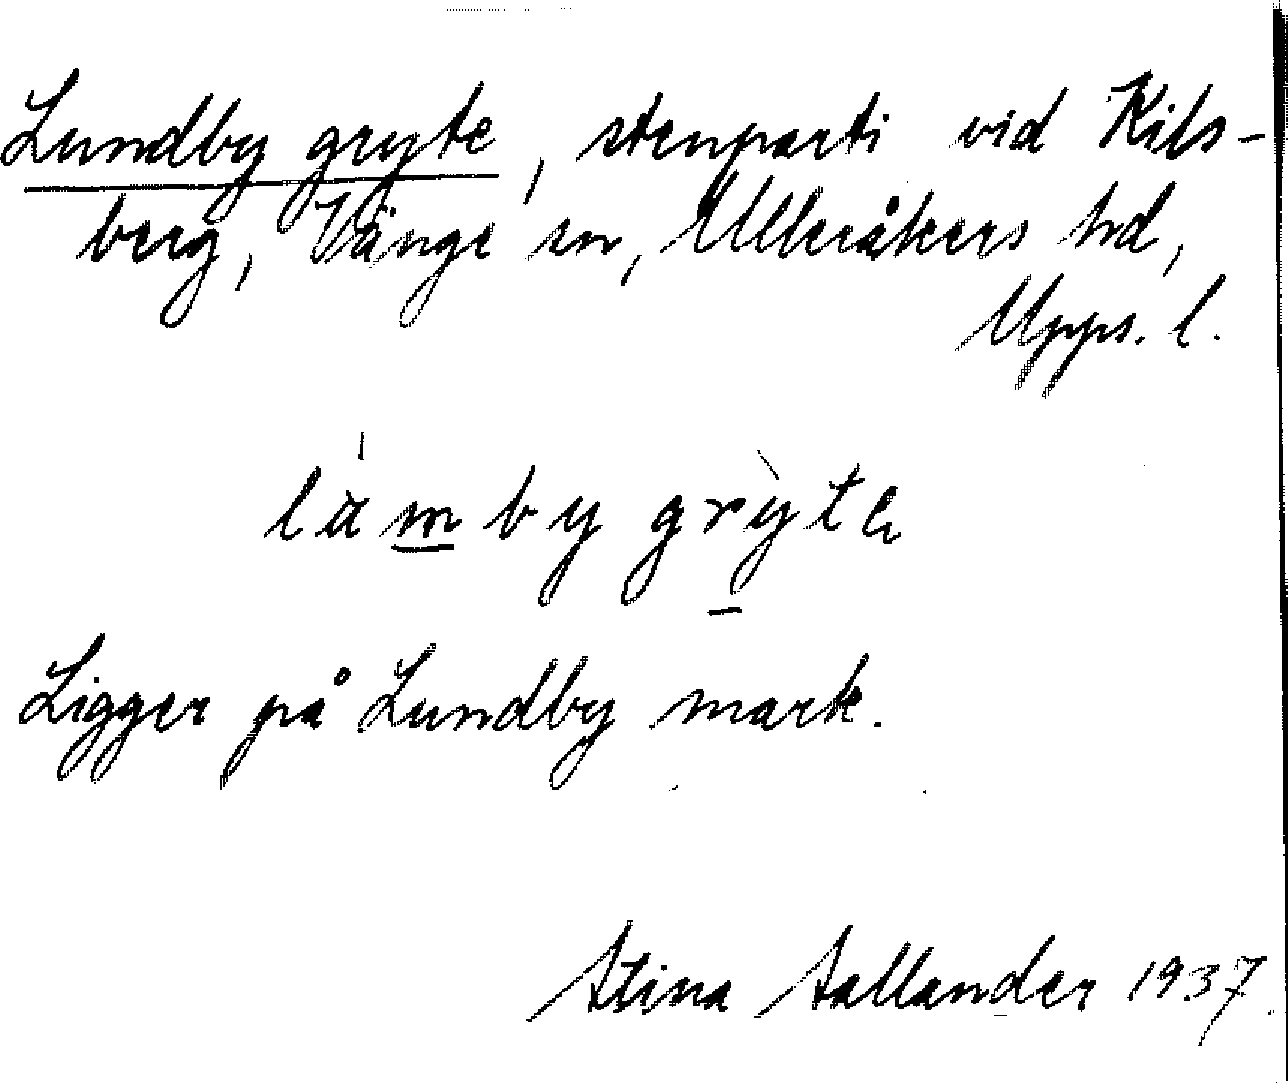 Lundby gryte, stenparti vid Kils-
berg, Vänge sn, Ulleråkers hd,
Upps. l.
by gryte
Ligger på Lundby mark.
Stina Sallander 1937.